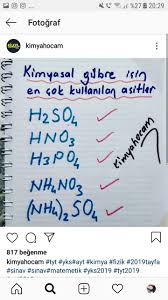 %17 20:29
Fotoğraf
kimyahocam
Kimyasal gübre için
en çok kullanılan asitler
H₂SO₄
HNO₃
H₃PO₄
kimyahocam
NH₄NO₃
(NH₄)₂SO₄
817 beğenme
kimyahocam #tyt #yks#ayt #kimya #fizik #2019tayfa
#sınav #sınav#matemetik #yks2019 #tyt2019